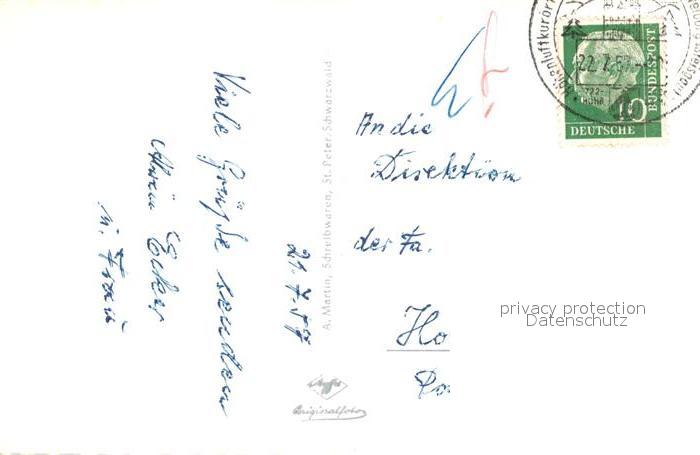 Höhenluftkurort
22.7.57
722-
Höhe
10
BUNDESPOST
DEUTSCHE
An die
Direktion
der Fa.
Ho
privacy protection
Datenschutz
21.7.57
Viele Grüße senden
Ecker
u. Frau
A. Martin, Schreibwaren, St. Peter, Schwarzwald
Agfa
Originalfoto